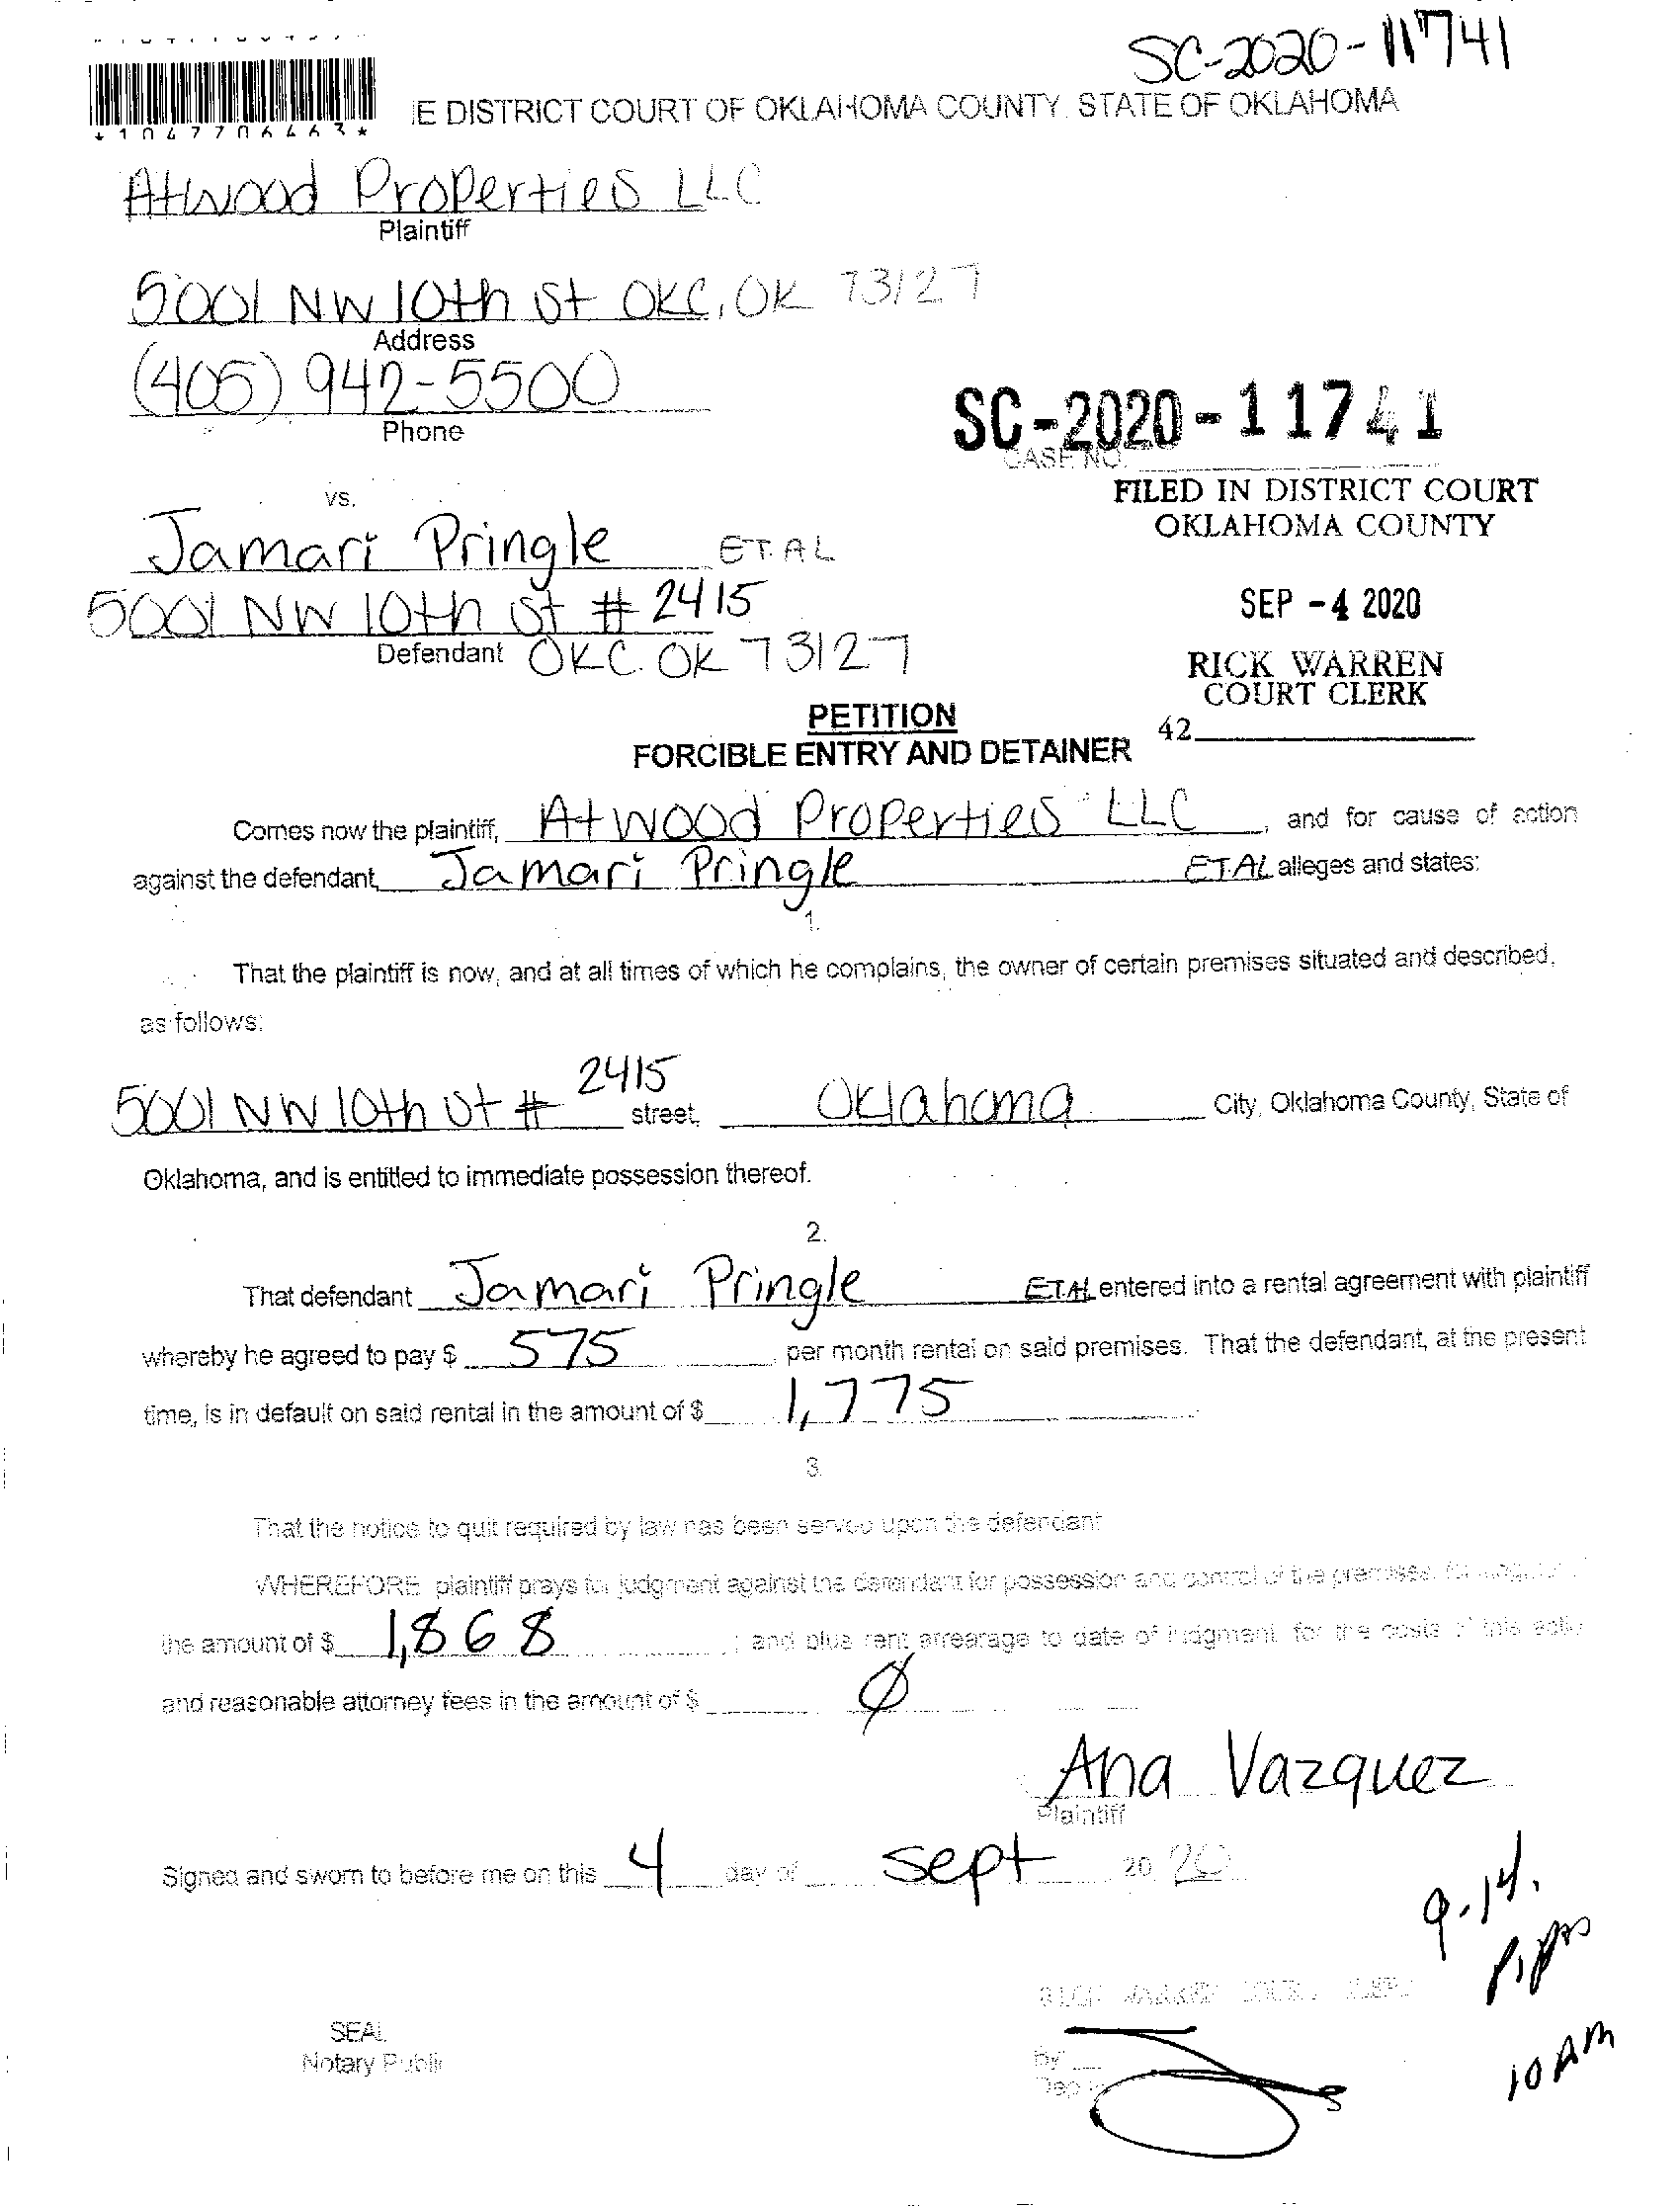 SC-2020-11741
*1047706463*
E DISTRICT COURT OF OKLAHOMA COUNTY, STATE OF OKLAHOMA
Atwood Properties LLC
Plaintiff
5001 NW 10th St OKC, OK 73127
Address
(405) 942-5500
Phone
SC-2020-11741
CASE NO.
FILED IN DISTRICT COURT
OKLAHOMA COUNTY
vs.
Jamari Pringle ET. AL
5001 NW 10th St # 2415
Defendant OKC. OK 73127
SEP -4 2020
RICK WARREN
COURT CLERK
42
PETITION
FORCIBLE ENTRY AND DETAINER
Comes now the plaintiff, Atwood Properties LLC, and for cause of action
against the defendant, Jamari Pringle ET. AL alleges and states:
1.
That the plaintiff is now, and at all times of which he complains, the owner of certain premises situated and described,
as follows:
5001 NW 10th St # 2415 street, Oklahoma City, Oklahoma County, State of
Oklahoma, and is entitled to immediate possession thereof.
2.
That defendant Jamari Pringle ET. AL entered into a rental agreement with plaintiff
whereby he agreed to pay $ 575 per month rental on said premises. That the defendant, at the present
time, is in default on said rental in the amount of $ 1,775
3.
That the notice to quit required by law has been served upon the defendant
WHEREFORE plaintiff prays for judgment against the defendant for possession and control of the premises, for
the amount of $ 1,868; and plus rent arrearage to date of judgment for the costs of this
and reasonable attorney fees in the amount of $ Ø
Ana Vazquez
Plaintiff
Signed and sworn to before me on this 4 day of Sept 20 20
9.14.
10 AM
RICK WARREN COURT CLERK
SEAL
Notary Public
By